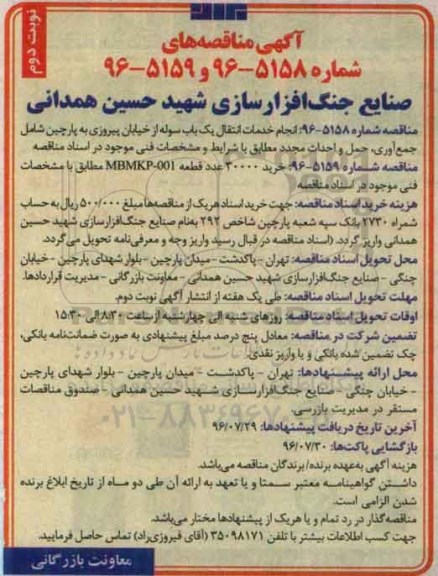 نوبت دوم
آگهی مناقصه‌های
شماره ۵۱۵۸-۹۶ و ۵۱۵۹-۹۶
صنایع جنگ‌افزارسازی شهید حسین همدانی
مناقصه شماره ۵۱۵۸-۹۶: انجام خدمات انتقال یک باب سوله از خیابان پیروزی به پارچین شامل
جمع‌آوری، حمل و احداث مجدد مطابق با شرایط و مشخصات فنی موجود در اسناد مناقصه
مناقصه شماره ۵۱۵۹-۹۶: خرید ۳۰۰۰۰ عدد قطعه MBMKP-001 مطابق با مشخصات
فنی موجود در اسناد مناقصه
هزینه خرید اسناد مناقصه: جهت خرید اسناد هریک از مناقصه‌ها مبلغ ۵۰۰/۰۰۰ ریال به حساب
شماره ۲۷۳۰ بانک سپه شعبه پارچین شاخص ۲۹۲ به‌نام صنایع جنگ‌افزارسازی شهید حسین
همدانی واریز گردد. (اسناد مناقصه در قبال رسید واریز وجه و معرفی‌نامه تحویل می‌گردد.
محل تحویل اسناد مناقصه: تهران - پاکدشت - میدان پارچین - بلوار شهدای پارچین - خیابان
چنگی - صنایع جنگ‌افزارسازی شهید حسین همدانی - معاونت بازرگانی - مدیریت قراردادها.
مهلت تحویل اسناد مناقصه: طی یک هفته از انتشار آگهی نوبت دوم.
اوقات تحویل اسناد مناقصه: روزهای شنبه الی چهارشنبه از ساعت ۸:۳۰ الی ۱۵:۳۰
تضمین شرکت در مناقصه: معادل پنج درصد مبلغ پیشنهادی به صورت ضمانت‌نامه بانکی،
چک تضمین شده بانکی و یا واریز نقدی
محل ارائه پیشنهادها: تهران - پاکدشت - میدان پارچین - بلوار شهدای پارچین
- خیابان چنگی - صنایع جنگ‌افزارسازی شهید حسین همدانی - صندوق مناقصات
مستقر در مدیریت بازرسی
آخرین تاریخ دریافت پیشنهادها: ۹۶/۰۷/۲۹
بازگشایی پاکت‌ها: ۹۶/۰۷/۳۰
هزینه آگهی به‌عهده برنده/برندگان مناقصه می‌باشد.
داشتن گواهینامه معتبر سمتا و یا تعهد به ارائه آن طی دو ماه از تاریخ ابلاغ برنده
شدن الزامی است.
مناقصه‌گذار در رد تمام و یا هریک از پیشنهادها مختار می‌باشد.
جهت کسب اطلاعات بیشتر با تلفن ۳۵۰۹۸۱۷۱ (آقای فیروزی‌راد) تماس حاصل فرمایید.
معاونت بازرگانی